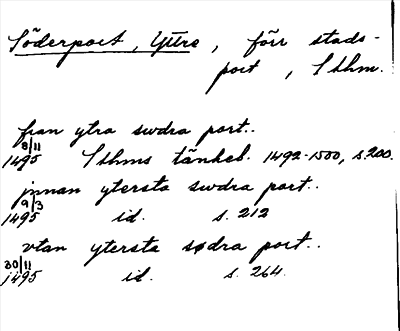 Söderport, Yttre, förr stads-
port, Sthm.
fran ytra swdra port..
8/11
1495 Sthms tänkeb. 1492-1500, s. 200.
jnnan ytersta swdra port..
9/3
1495 id. s. 212
vtan ytersta södra port..
30/11
1495 id. s. 264.